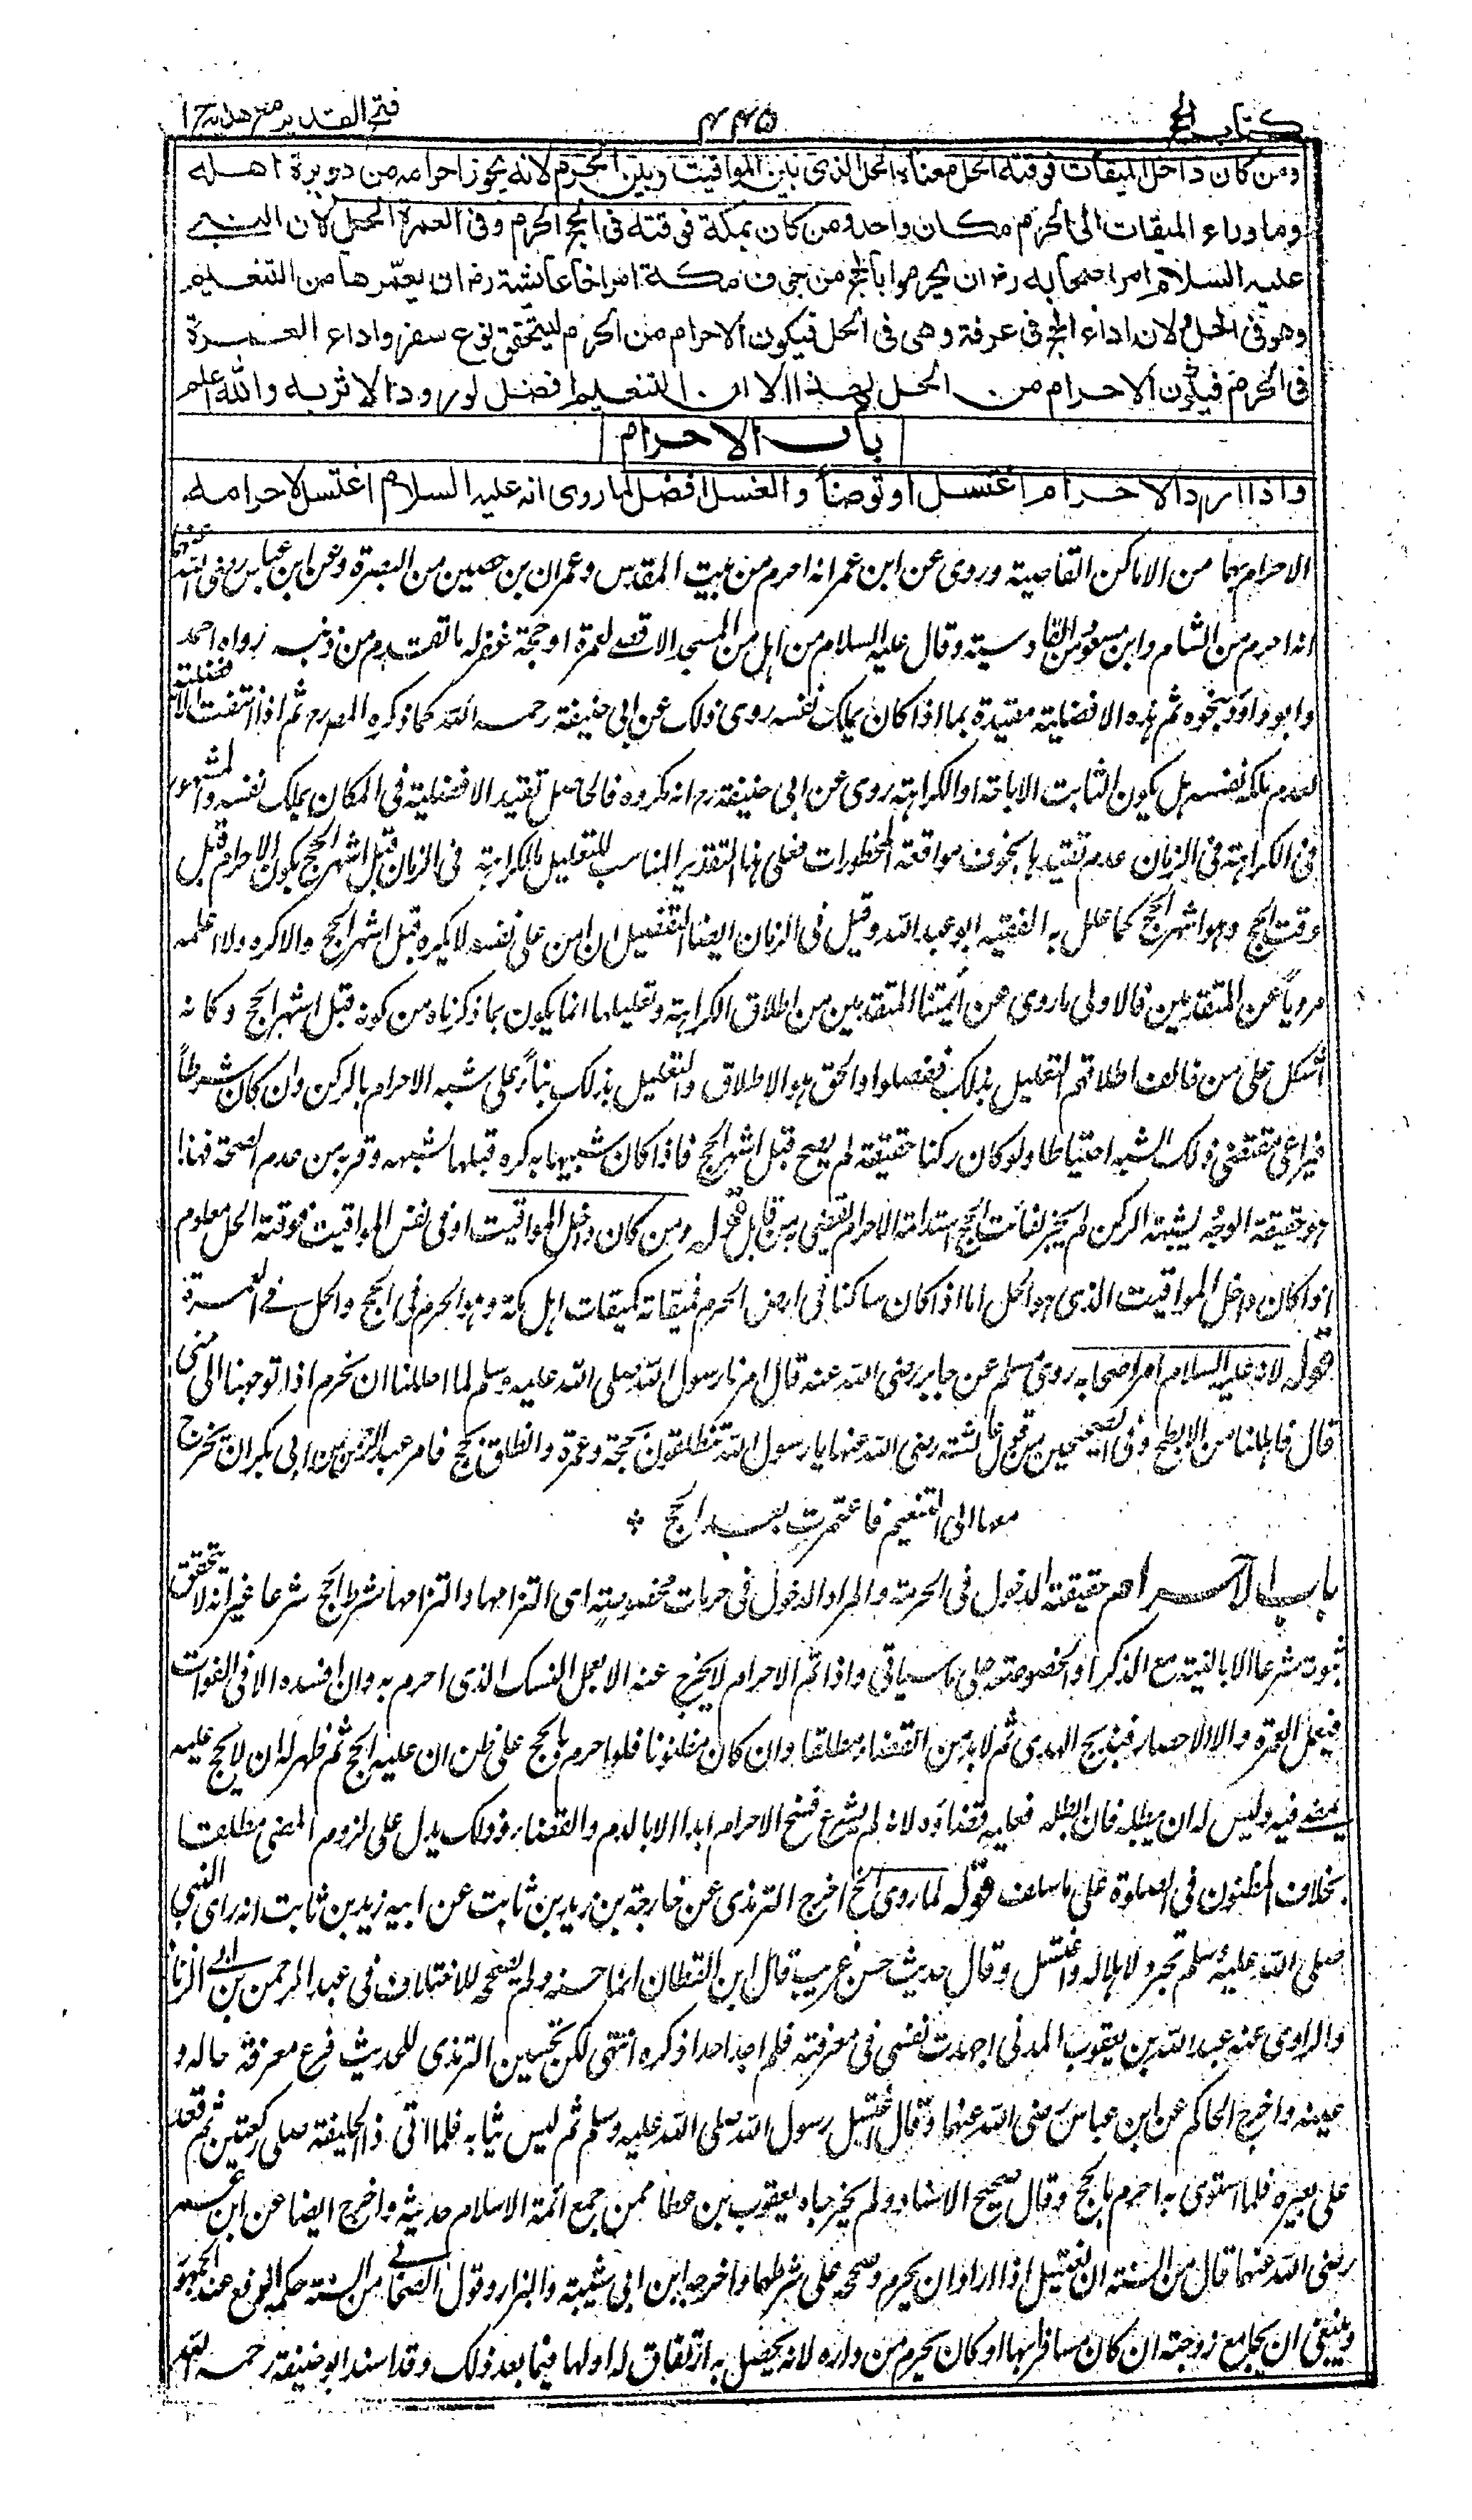 كتاب الحج
٤٤٥
فتح القدير مع هدايه ج ١
ومن كان داخل الميقات فوقته الحل معناه الحل الذى بين المواقيت وبين الحرم لانه يجوز احرامه من دويرة اهله
وما وراء الميقات الى الحرم مكان واحد ومن كان بمكة فوقته فى الحج الحرم وفى العمرة الحل لان النبى
عليه السلام امر اصحابه رض ان يحرموا بالحج من جوف مكة امر اخا عايشة رض ان يعمرها من التنعيم
وهو فى الحل ولان اداء الحج فى عرفة وهى فى الحل فيكون الاحرام من الحرم ليتحقق نوع سفر واداء العمرة
فى الحرم فيكون الاحرام من الحل لهذا الا ان التنعيم افضل لورود الاثر به والله اعلم
باب الاحرام
واذا اراد الاحرام اغتسل او توضأ والغسل افضل لما روى انه عليه السلام اغتسل لاحرامه
الاحرام بهما من الاماكن القاصية وروى عن ابن عمر انه احرم من بيت المقدس وعمران بن حصين من البصرة وعن ابن عباس رضى الله عنهما
انه احرم من الشام وابن مسعود من القادسية وقال عليه السلام من اهل من المسجد الاقصى لعمرة او حجة غفر له ما تقدم من ذنبه رواه احمد
وابو داود بنحوه ثم هذه الافضلية مقيدة بما اذا كان يملك نفسه روى ذلك عن ابى حنيفة رحمه الله كما ذكره المصر ح ثم اذا انتفت الافضلية
لعدم ملكه نفسه هل يكون الثابت الاباحة او الكراهة روى عن ابى حنيفة رح انه مكروه فالحاصل تقييد الافضلية فى المكان بملك نفسه والمشهور
فى الكراهة فى الزمان عدم تقييدها بخوف مواقعة المحظورات فعلى هذا التقدير المناسب للتعليل للكراهة فى الزمان قبل اشهر الحج بكون الاحرام قبل
وقت الحج وهو اشهر الحج كما علل به الفقيه ابو عبد الله وقيل فى الزمان ايضا التفصيل ان امن على نفسه لا يكره قبل اشهر الحج والا كره ولا اعلمه
مرويا عن المتقدمين فالاولى ما روى عن ائمتنا المتقدمين من اطلاق الكراهة وتعليلها انما يكون بما ذكرناه من كونه قبل اشهر الحج وكانه
اشكل على من خالف اطلاقهم التعليل بذلك ففصلوا والحق هو الاطلاق والتعليل بذلك بناء على شبه الاحرام بالركن وان كان شرطا
فيراعى مقتضى ذلك الشبه احتياطا ولو كان ركنا حقيقة لم يصح قبل اشهر الحج فاذا كان شبيها به كره قبلها لشبهه وقربه من عدم الصحة فهذا
هو حقيقة الوجه لشبهة الركن لم يجز لفائت الحج استدامة الاحرام ليقضى به من قابل قوله ومن كان داخل المواقيت او فى نفس المواقيت فوقته الحل معلوم
اذا كان داخل المواقيت الذى هو الحل اما اذا كان ساكنا فى ارض الحرم فميقاته كميقات اهل مكة وهو الحرم فى الحج والحل فى العمرة
قوله لانه عليه السلام امر اصحابه روى مسلم عن جابر رضى الله عنه قال امرنا رسول الله صلى الله عليه وسلم لما احللنا ان نحرم اذا توجهنا الى منى
قال فاهللنا من الابطح وفى الصحيحين من قول عائشة رضى الله عنها يا رسول الله تنطلقون بحجة وعمرة وانطلق بحج فامر عبد الرحمن بن ابى بكر ان يخرج
معها الى التنعيم فاعتمرت بعد الحج
باب الاحرام حقيقته الدخول فى الحرمة والمراد الدخول فى حرمات مخصوصة اى التزامها والتزامها شرط الحج شرعا غير انه لا يتحقق
ثبوته شرعا الا بالنية مع الذكر او الخصوصة على ما سياتى واذا تم الاحرام لا يخرج عنه الا بعمل النسك الذى احرم به وان افسده الا فى الفوات
فبعمل العمرة والا الاحصار فبذبح الهدى ثم لا بد من القضاء مطلقا وان كان مظنونا فلو احرم بالحج على ظن ان عليه الحج ثم ظهر له ان لا حج عليه
يمضى فيه وليس له ان يبطله فان ابطله فعليه قضاؤه لانه لم يشرع فسخ الاحرام ابدا الا بالدم والقضاء وذلك يدل على لزوم المضى مطلقا
بخلاف المظنون فى الصلوة على ما سلف قوله لما روى الخ اخرج الترمذى عن خارجة بن زيد بن ثابت عن ابيه زيد بن ثابت انه راى النبى
صلى الله عليه وسلم تجرد لاهلاله واغتسل وقال حديث حسن غريب قال ابن القطان انما حسنه ولم يصححه للاختلاف فى عبد الرحمن بن ابى الزناد
والراوى عنه عبد الله بن يعقوب المدنى اجهدت نفسى فى معرفته فلم اجد احدا ذكره انتهى لكن تحسين الترمذى للحديث فرع معرفة حاله و
عينه واخرج الحاكم عن ابن عباس رضى الله عنهما وقال اغتسل رسول الله صلى الله عليه وسلم ثم لبس ثيابه فلما اتى ذا الحليفة صلى ركعتين ثم قعد
على بعيره فلما استوى به احرم بالحج وقال صحيح الاسناد ولم يخرجاه يعقوب بن عطا ممن جمع ائمة الاسلام حديثه واخرج ايضا عن ابن عمر
رضى الله عنهما قال من السنة ان يغتسل اذا اراد ان يحرم وصححه على شرطهما واخرجه ابن ابى شيبة والبزار وقول الصحابى من السنة حكمه الرفع عند الجمهور
وينبغى ان يجامع زوجته ان كان مسافرا بها او كان يحرم من داره لانه يحصل به ارتفاق له او لها فيما بعد ذلك وقد اسند ابو حنيفة رحمه الله